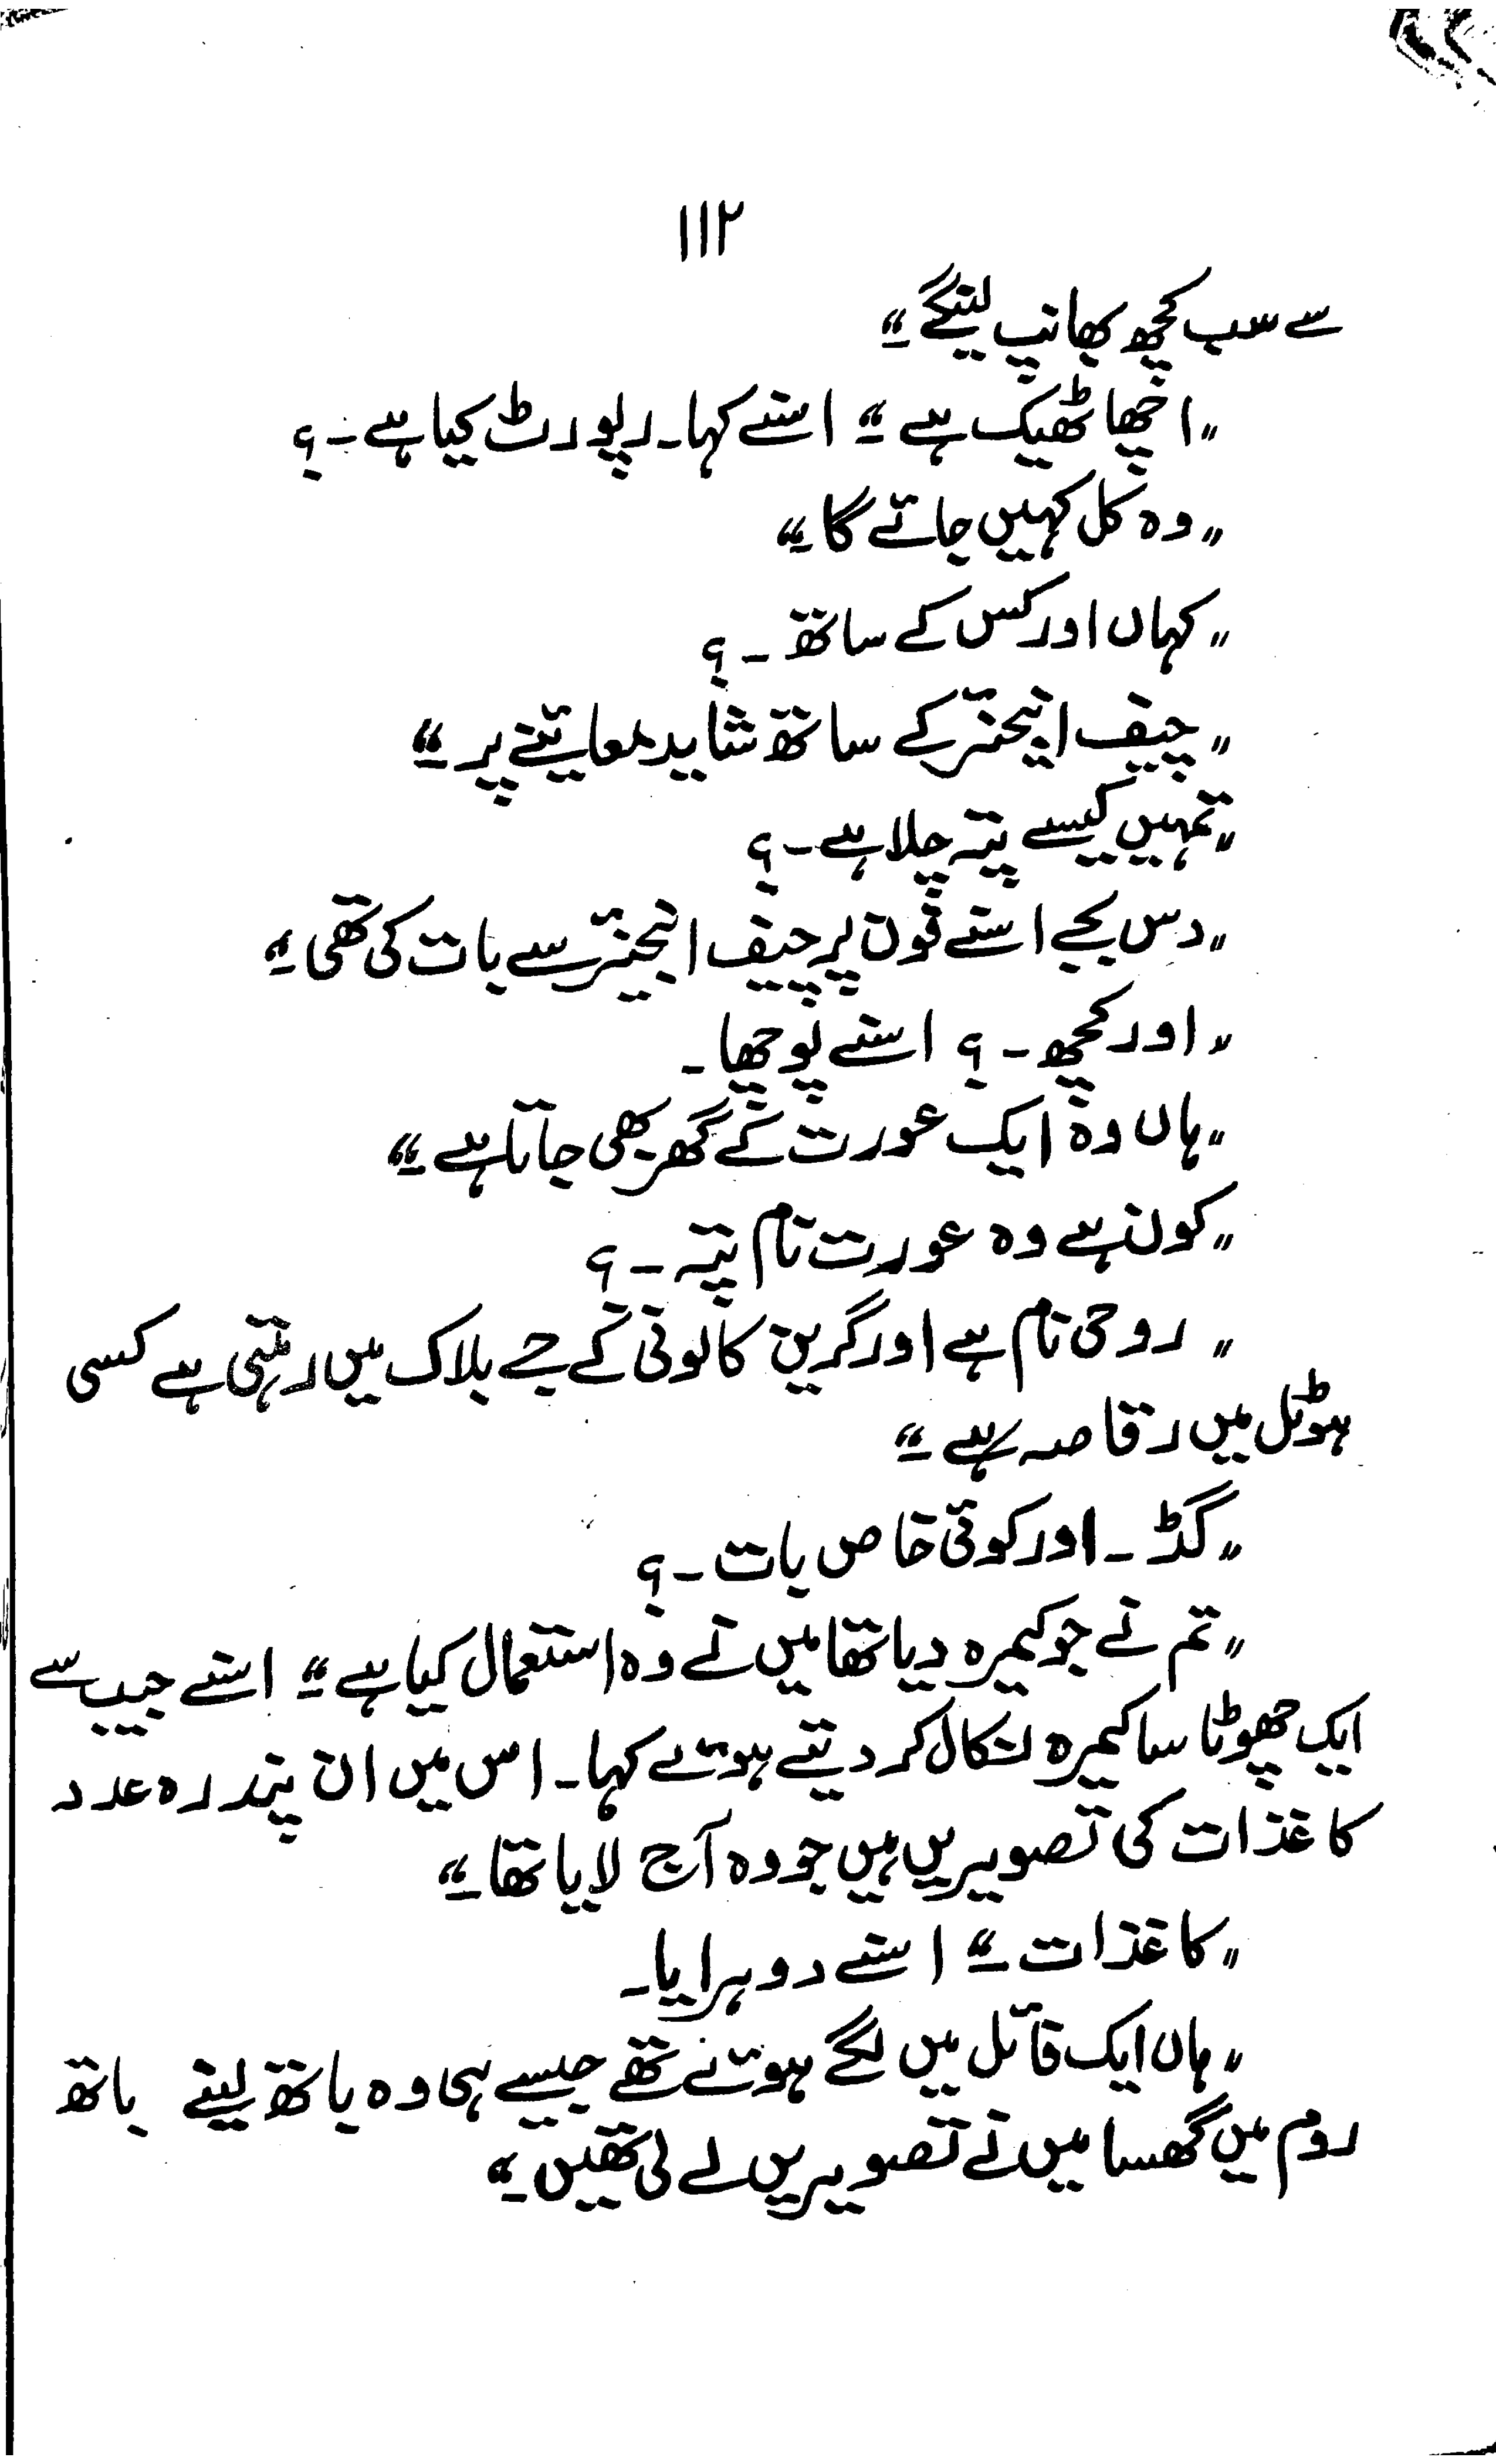 ۱۱۲
سے سب کچھ بھانپ لینگے۔"
"اچھا ٹھیک ہے۔" اسنے کہا۔ رپورٹ کیا ہے۔؟
"وہ کل کہیں جائے گا۔"
"کہاں اور کس کے ساتھ۔؟
"چیف انجینئر کے ساتھ شاید معائنے پر۔"
"تمہیں کیسے پتہ چلا ہے۔؟
"دس بجے اسنے فون پر چیف انجینئر سے بات کی تھی۔"
"اور کچھ۔؟ اسنے پوچھا۔
"ہاں وہ ایک عورت کے گھر بھی جاتا ہے۔"
"کون ہے وہ عورت نام پتہ۔؟
"روحی نام ہے اور گرین کالونی کے جے بلاک میں رہتی ہے کسی
ہوٹل میں رقاصہ ہے۔"
"گڈ۔ اور کوئی خاص بات۔؟
"تم نے جو کیمرہ دیا تھا میں نے وہ استعمال کیا ہے۔" اسنے جیب سے
ایک چھوٹا سا کیمرہ نکال کر دیتے ہوئے کہا۔ اس میں ان پندرہ عدد
کاغذات کی تصویریں ہیں جو وہ آج لایا تھا۔"
"کاغذات۔" اسنے دوہرایا۔
"ہاں ایک فائل میں لگے ہوئے تھے جیسے ہی وہ باتھ لینے باتھ
روم میں گھسا میں نے تصویریں لے لی تھیں۔"